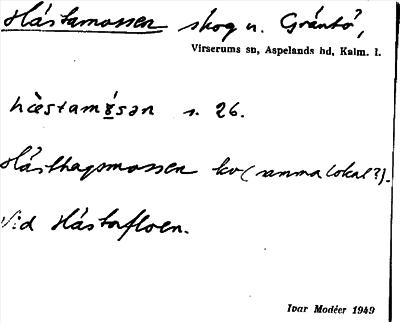 Hästamossen skog n. Gräntö,
Virserums sn, Aspelands hd, Kalm. l.
hæstamɤsən s. 26.
Hästhagsmossen kv (samma lokal?).
Vid Hästafloen.
Ivar Modéer 1949